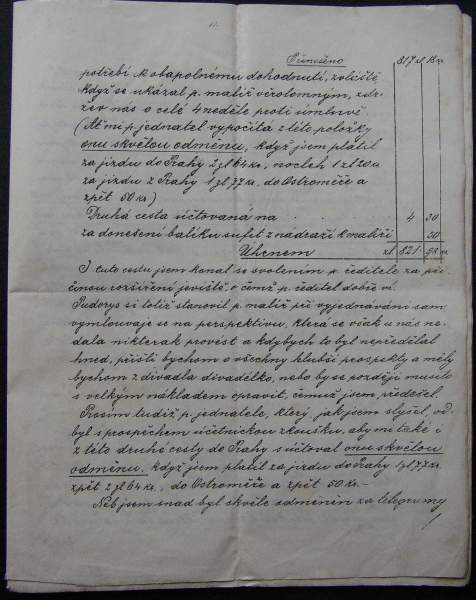 Přenešeno 817 zl 18 kr
potřebí k obapolnému dohodnutí, zvláště
když se ukázal p. malíř věrolomným, zdr-
žev nás o celé 4 neděle proti úmluvě.
(Ať mi p. jednatel vypočítá z této položky
onu skvělou odměnu, když jsem platil
za jízdu do Prahy 2 zl 64 kr, nocleh 1 zl 20 a
za jízdu z Prahy 1 zl 77 kr. do Ostroměře a
zpět 50 kr.)
Druhá cesta účtovaná na 4 30
za donešení balíku sufit z nádraží k malíři 50
Úhrnem zl 821 98 kr
I tuto cestu jsem konal se svolením p. ředitele za pří-
činou rozšíření jeviště, o čemž p. ředitel dobře ví.
Půdorys si totiž stanovil p. malíř při vyjednávání sám
vymlouvaje se na perspektivu, která se však u nás ne-
dala nikterak provést a kdybych to byl nepředělal
hned, přišli bychom o všechny hlubší prospekty a měli
bychom z divadla divadélko, nebo by se později musilo
s velkým nákladem opravit, čemuž jsem předešel.
Prosím tudíž p. jednatele, který, jak jsem slyšel, od-
byl s prospěchem účetnickou zkoušku, aby mi také i
z této druhé cesty do Prahy súčtoval onu skvělou
odměnu, když jsem platil za jízdu do Prahy 1 zl 77 kr.
zpět 2 zl 64 kr., do Ostroměře a zpět 50 kr. –
Neb jsem snad byl skvěle odměněn za telegramy
!